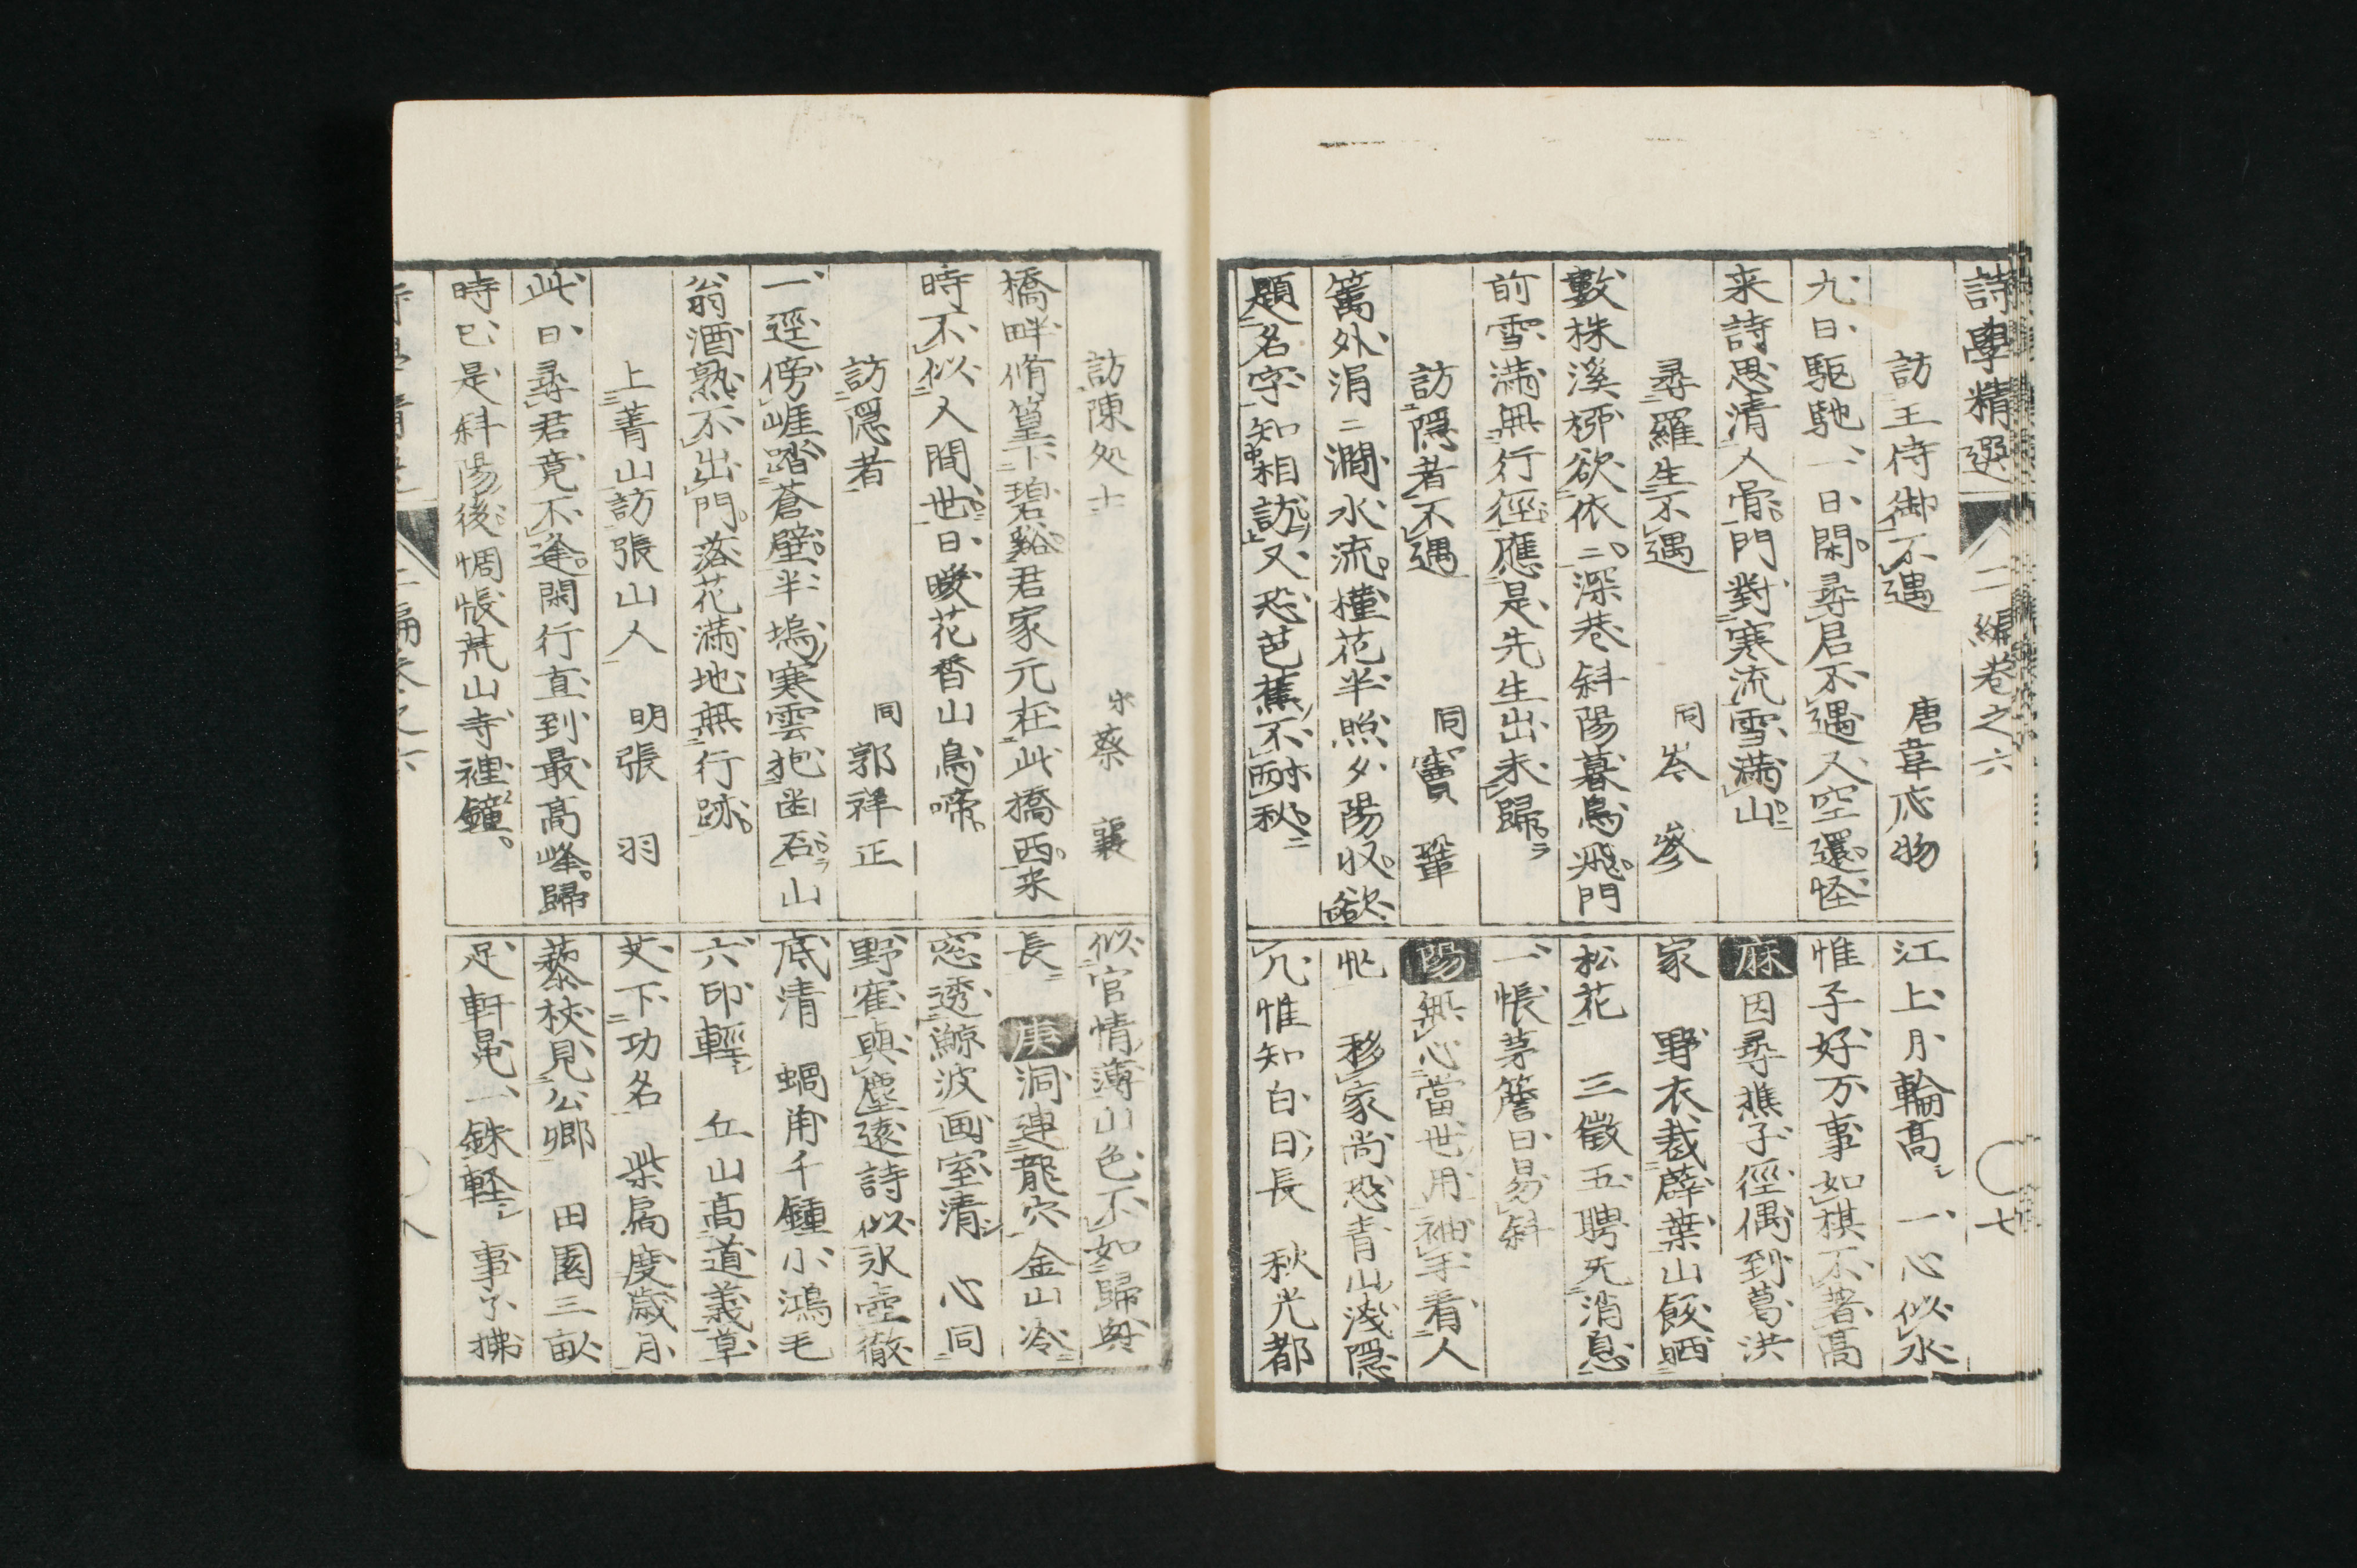 詩學精選 二編卷之六 七
訪王侍御不遇 唐韋应物
九日駈馳一日閑尋君不遇又空還怪
来詩思清人骨門對寒流雪滿山
尋羅生不遇 同岑參
數株溪栁欲依〻深巷斜陽暮鳥飛門
前雪滿無行徑應是先生出未歸
訪隱者不遇 同竇鞏
篱外涓〻澗水流槿花半照夕陽收欲
題名字知相訪又恐芭蕉不耐秋
江上月輪高 一心似水
惟子好万事如棋不著高
麻 因尋樵子徑偶到葛洪
家 野衣裁薜葉山飯晒
松花 三徵五聘无消息
一帳茅簷日易斜
陽 無心當世用袖手看人
忙 移家尚恐青山淺隱
几惟知白日長 秋光都
訪陳処士 宋蔡襄
橋畔脩篁下碧谿君家元在此橋西来
時不似人間世日暖花香山鳥啼
訪隱者 同郭祥正
一逕傍崕踏蒼壁半塢寒雲抱幽石山
翁酒熟不出門落花滿地無行跡
上菁山訪張山人 明張羽
此日尋君竟不逢閑行直到最高峰歸
時已是斜陽後惆悵荒山寺裡鐘
似官情薄山色不如歸與
長 庚 洞連龍穴金山冷
窓透鯨波画室清 心同
野寉與塵遠詩似氷壺徹
底清 蝸角千鍾小鴻毛
六印輕 丘山高道義草
芥下功名 柴扃度歲月
藜杖見公卿 田園三畝
足軒冕一銖軽 事了拂
詩學精選 二編卷之六 八